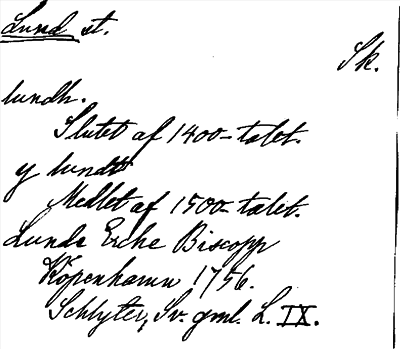 Lund st.
Sk.
lundh.
Slutet af 1400-talet.
y lundt
Medlet af 1500-talet.
Lunde Erche Biscopp
Köpenhamn 1756.
Schlyter, Sv. gml. L. IX.